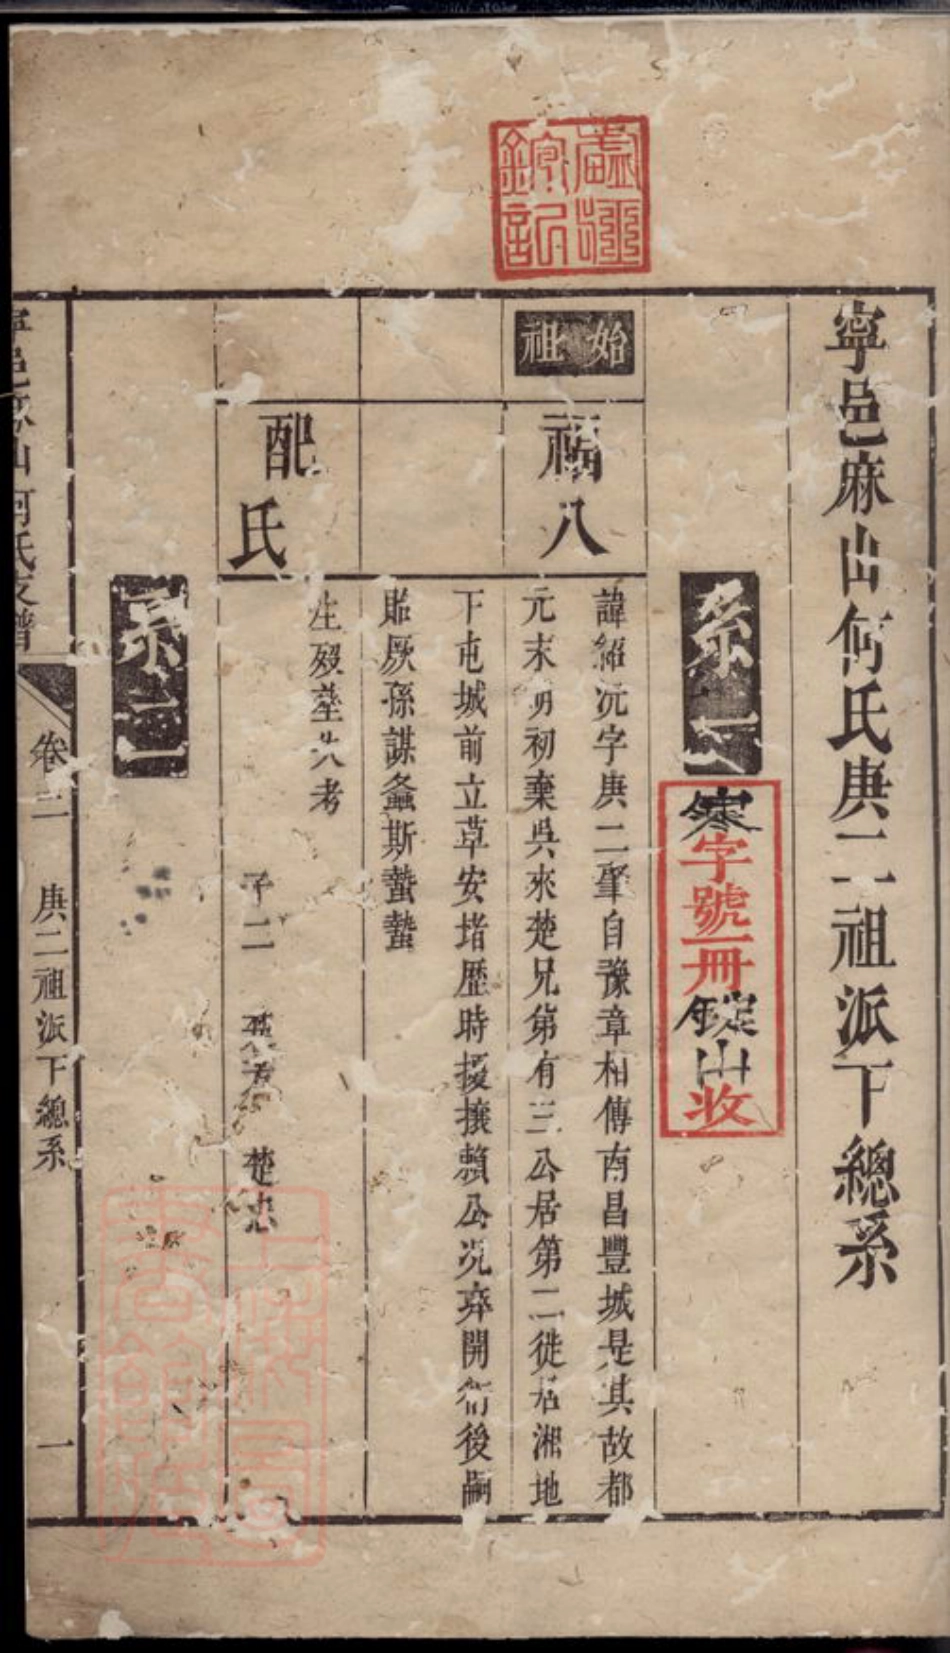 寧邑麻山何氏庚二祖派下總系
系一
寒字號一冊錠山收
始祖
福八
諱紹沅字庚二肇自豫章相傳南昌豐城是其故都
元末明初棄吳來楚兄第有三公居第二徙居湘地
下屯城前立草安堵歷時擾攘賴公況奔開衍後嗣
貽厥孫謀螽斯蟄蟄
配氏
生歿塟失考
子二 楚忠
系二
卷二 庚二祖派下總系 一